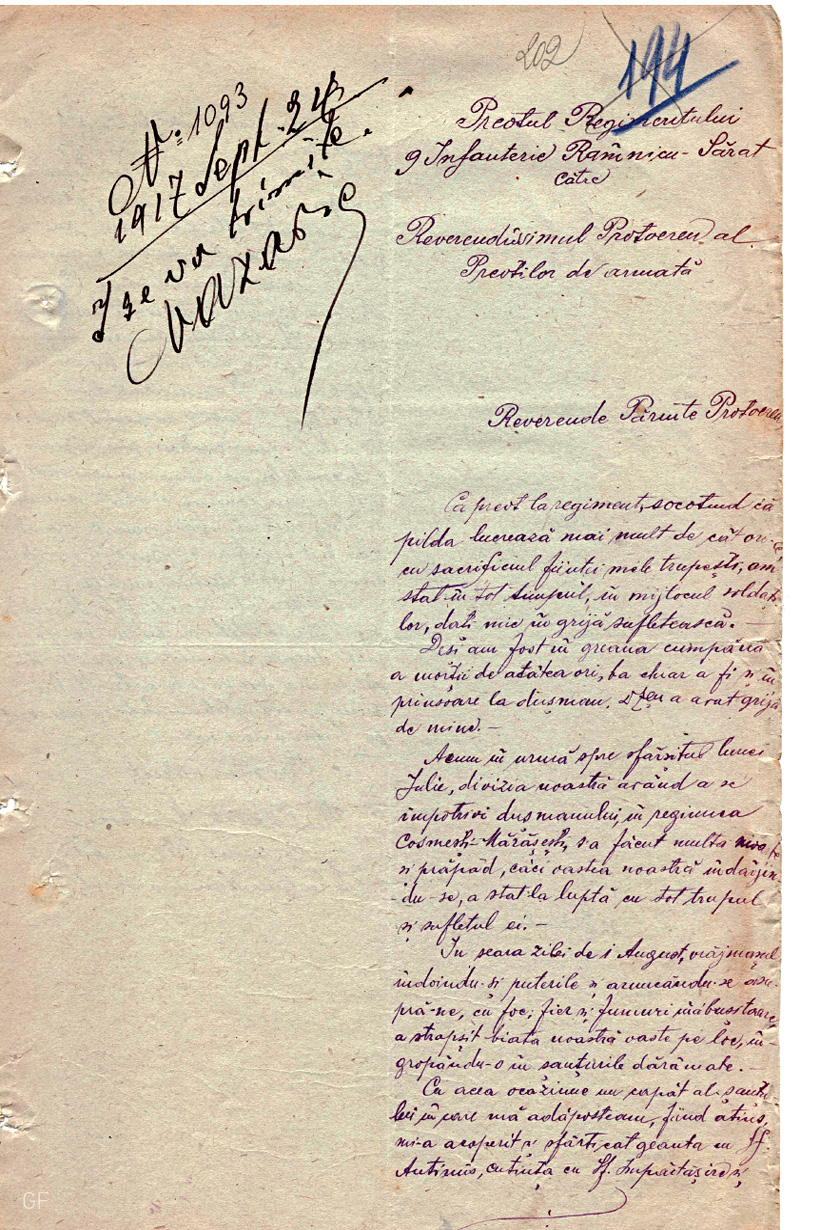 202
194
Nº. 1093
1917 Sept. 24
I se va trimite.
Preotul Regimentului
9 Infanterie Râmnicu-Sărat
către
Reverendisimul Protoereu al
Preoților de armată
Reverende Părinte Protoereu
Ca preot la regiment, socotind că
pilda lucrează mai mult de cât ori-ce
cu sacrificiul ființei mele trupești, am
stat în tot timpul, în mijlocul soldați-
lor, dați mie în grijă sufletească. —
Deși am fost în greaua cumpănă
a morții de atâtea ori, ba chiar a fi și în
prinsoare la dușman, D-zeu a avut grijă
de mine. —
Acum în urmă spre sfârșitul lunei
Iulie, divizia noastră având a se
împotrivi dușmanului, în regiunea
Cosmești-Mărășești, s'a făcut multa
și prăpăd, căci oastea noastră îndârjin-
-du-se, a stat la luptă cu tot trupul
și sufletul ei. —
În seara zilei de 1 August, vrăjmașul
îndoindu-și puterile și aruncându-se asu-
pră-ne, cu foc, fier și fumuri înăbușitoare,
a stropșit biata noastră oaste pe loc, în-
gropându-o în șanțurile dărâmate. —
Cu acea ocaziune un capăt al șanțu
lui în care mă adăposteam, fiind atins,
mi-a acoperit și sfârticat geanta cu Sf.
Antimis, cutiuța cu Sf. Împărtășire și
GF